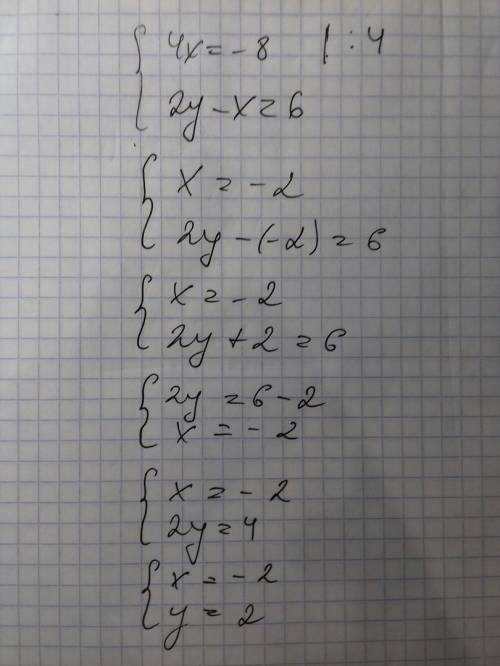 4x = - 8 | : 4
2y - x = 6
x = - 2
2y - (-2) = 6
x = - 2
2y + 2 = 6
2y = 6 - 2
x = - 2
x = - 2
2y = 4
x = - 2
y = 2